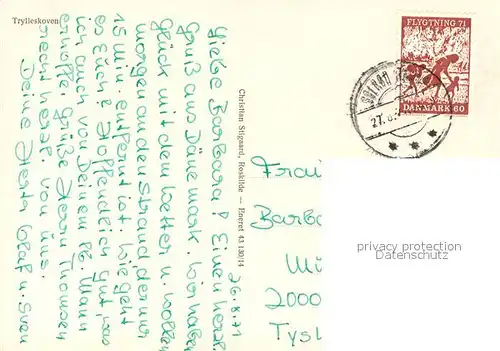 Trylleskoven
FLYGTNING 71
DANMARK 60
27.8.
26.8.71
Liebe Barbara! Einen herzl.
Gruß aus Dänemark. Wir haben
Glück mit dem Wetter u. wollen
morgen an den Strand, der nur
15 min. entfernt ist. Wie geht
es Euch? Hoffendlich gut, was
ich auch von Deinem lb. Mann
erhoffe. Grüße Herrn Thomsen
recht herzl. von uns.
Deine Herta Olaf u. Sven
Christian Stigaard, Roskilde — Eneret 43 130/14
Frau
Barba
Mü
2000
Tys
privacy protection
Datenschutz